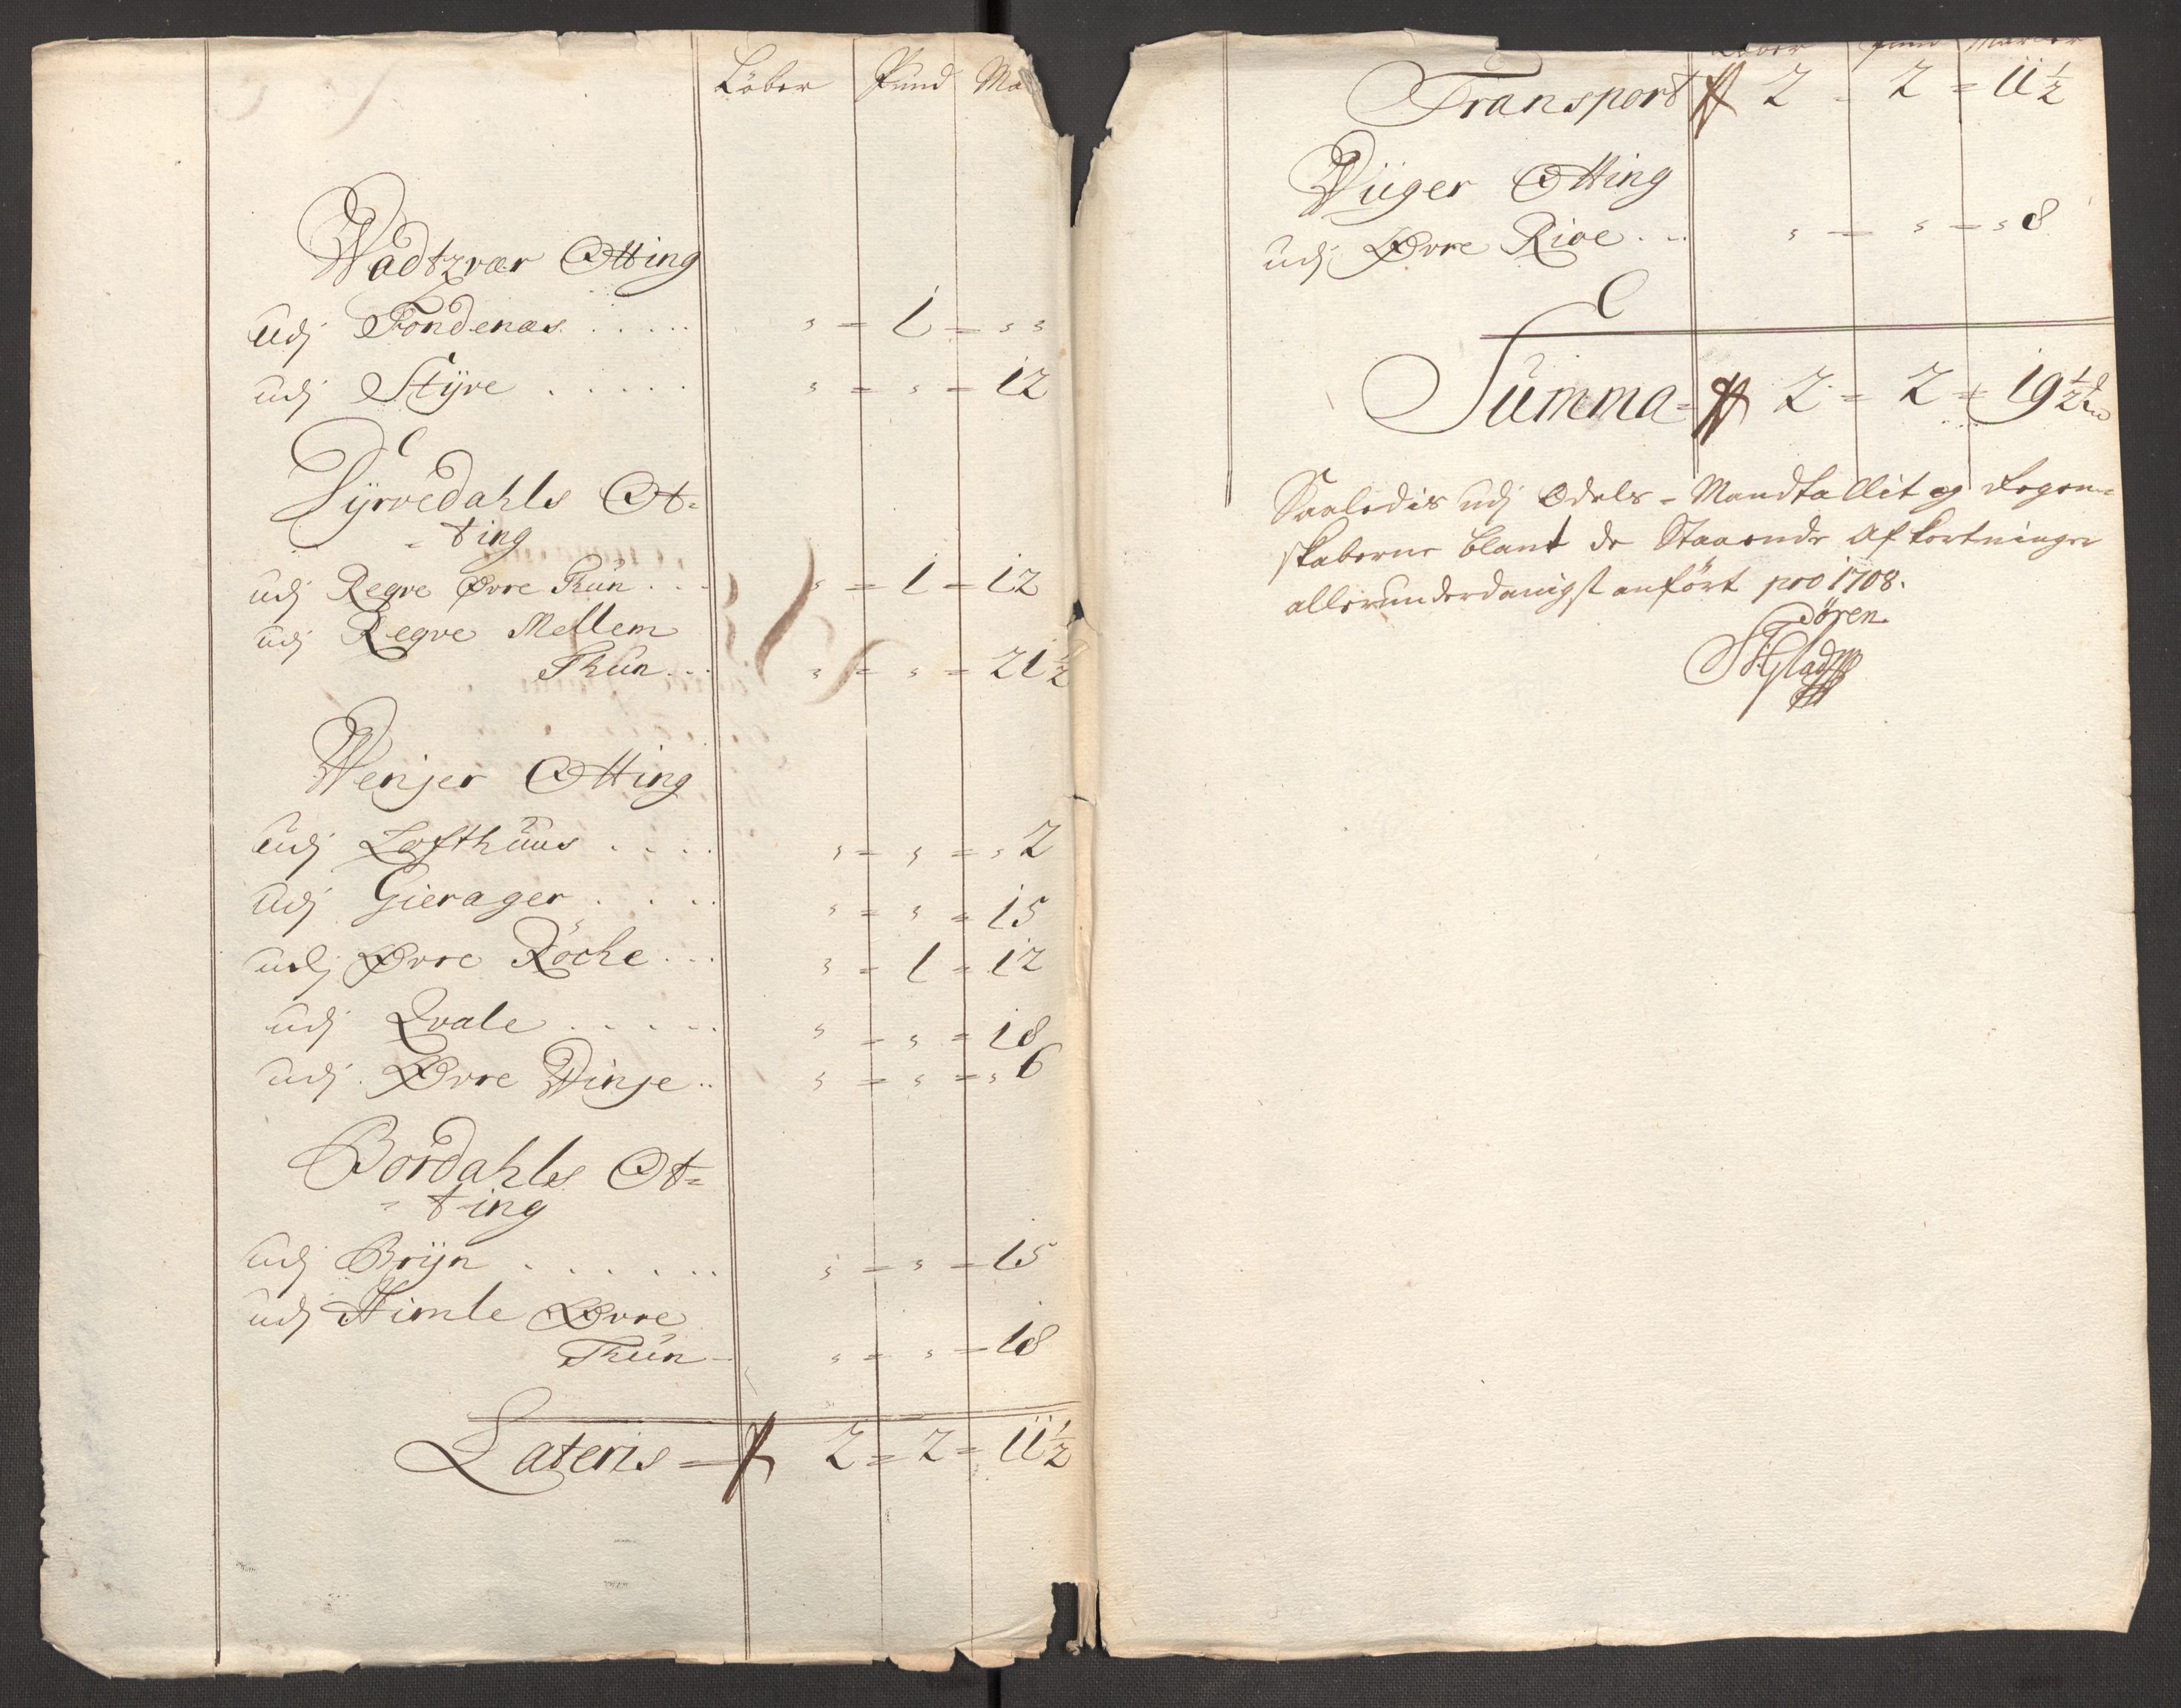 Löber Pund Ma
Wadtzvær Otting
udj Fondenæs . . . . . " = 1 = " "
udj Styre . . . . . " = " = 12
Dyrvedahls Ot=
=ting
udj Regve Øvre Thun . . . " = 1 = 12
udj Regve Mellem
Thun . . . " = " = 21½
Wenjer Otting
udj Lofthuus . . . . " = " = " 2
udj Gierager . . . . " = " = 15
udj Øvre Röche . . . " = 1 = 12
udj Qvale . . . . . " = " = 18
udj Øvre Winje . . " = " = " 6
Bordahls Ot=
=ting
udj Bryn . . . . . . " = " = 15
udj Himle Øvre
Thun - " = " = 18
Lateris = 2 = 2 = 11½
Löber Pund Marker
Transport 2 = 2 = 11½
Wiiger Otting
udj Øvre Rive . . . " = " = " 8
Summa = 2 = 2 = 19½
Saaledis udj Odels = Mandtallit og Regen=
skaberne blant de Staaende Afkortninger
allerunderdanigst anført pro 1708.